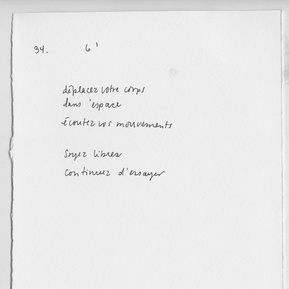 34. 6'
déplacez votre corps
dans 'espace
écoutez vos mouvements
soyez libres
continuez d'essayer